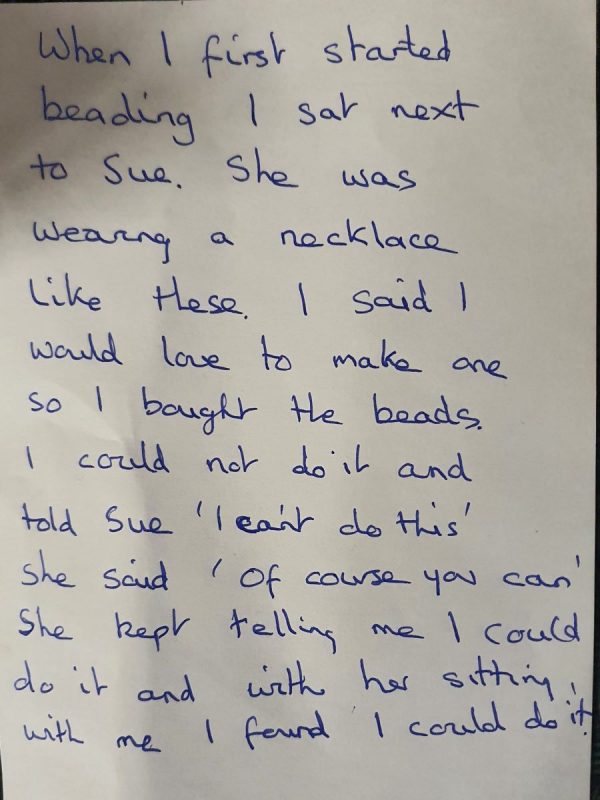 When I first started
beading I sat next
to Sue. She was
wearng a necklace
like these. I said I
would love to make one
so I bought the beads.
I could not do it and
told Sue 'I can't do this'
She said 'Of course you can'
She kept telling me I could
do it and with her sitting
with me I found I could do it!